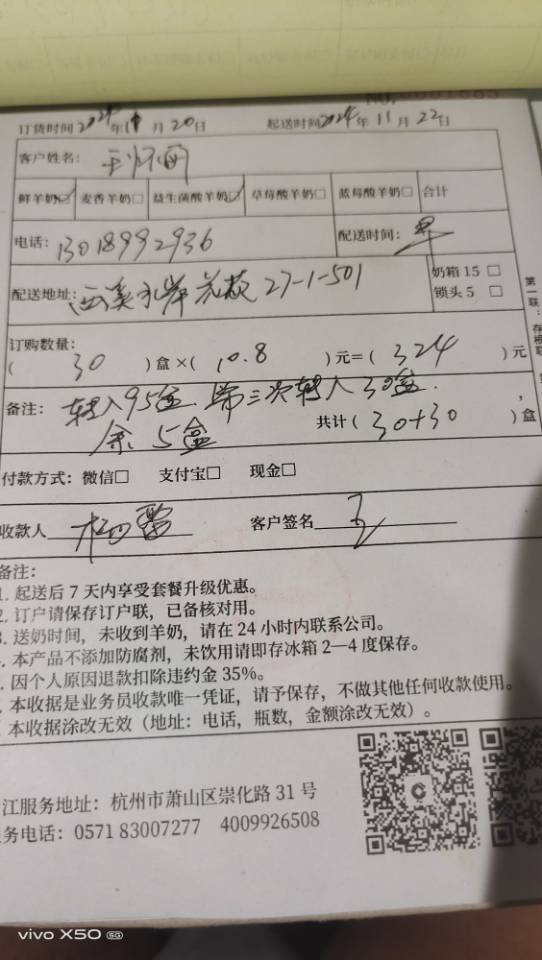 订货时间2024年11月20日 起送时间2024年11月22日
客户姓名：王
鲜羊奶☑ 麦香羊奶□ 益生菌酸羊奶☑ 草莓酸羊奶□ 蓝莓酸羊奶□ 合计
电话：13018992936 配送时间：早
配送地址：西溪永岸花苑27-1-501
奶箱15 □
锁头5 □
订购数量：
( 30 )盒×( 10.8 )元=( 324 )元
备注：转入95盒.第三次转入30盒.
余.5盒 共计(30+30)盒
付款方式：微信□ 支付宝□ 现金□
收款人 客户签名 王
备注：
1. 起送后7天内享受套餐升级优惠。
2. 订户请保存订户联，已备核对用。
3. 送奶时间，未收到羊奶，请在24小时内联系公司。
. 本产品不添加防腐剂，未饮用请即存冰箱2—4度保存。
. 因个人原因退款扣除违约金35%。
. 本收据是业务员收款唯一凭证，请予保存，不做其他任何收款使用。
本收据涂改无效（地址：电话，瓶数，金额涂改无效）。
江服务地址：杭州市萧山区崇化路31号
务电话：0571 83007277 4009926508
第一联：存根联
vivo X50 5G